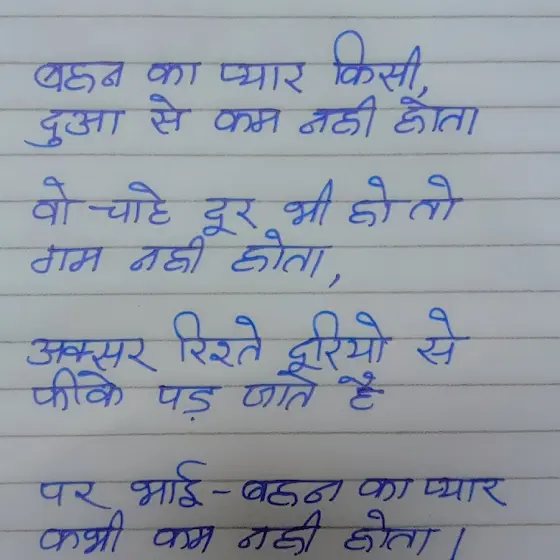 बहन का प्यार किसी,
दुआ से कम नही होता
वो चाहे दूर भी हो तो
गम नही होता,
अक्सर रिश्ते दूरियो से
फीके पड़ जाते है
पर भाई-बहन का प्यार
कभी कम नही होता।